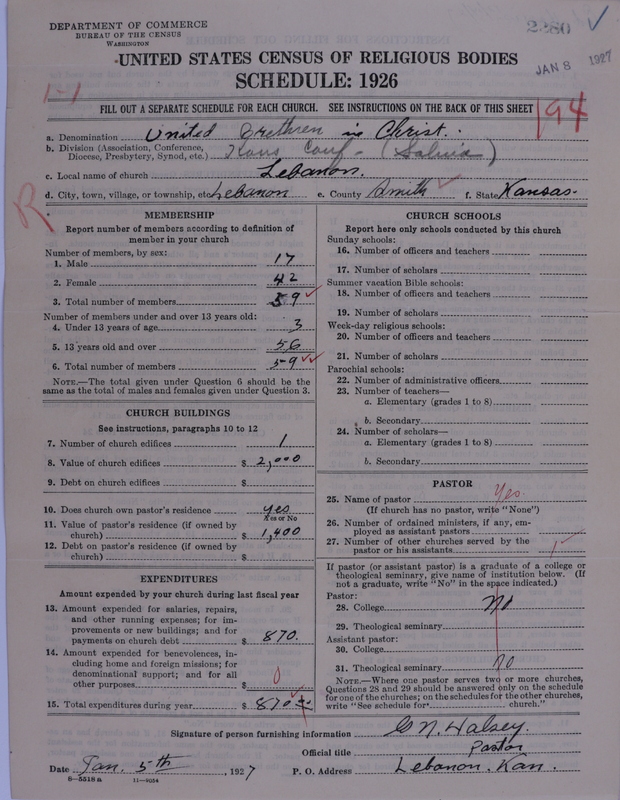 DEPARTMENT OF COMMERCE
BUREAU OF THE CENSUS
WASHINGTON
2280
JAN 8 1927
UNITED STATES CENSUS OF RELIGIOUS BODIES
SCHEDULE: 1926
1-1
FILL OUT A SEPARATE SCHEDULE FOR EACH CHURCH. SEE INSTRUCTIONS ON THE BACK OF THIS SHEET
194
a. Denomination United Brethren in Christ.
b. Division (Association, Conference, Diocese, Presbytery, Synod, etc.) Kans Conf - (Salina)
c. Local name of church Lebanon.
d. City, town, village, or township, etc. Lebanon e. County Smith f. State Kansas.
R
MEMBERSHIP
Report number of members according to definition of
member in your church
Number of members, by sex:
1. Male 17
2. Female 42
3. Total number of members 59
Number of members under and over 13 years old:
4. Under 13 years of age 3
5. 13 years old and over 56
6. Total number of members 59
NOTE.—The total given under Question 6 should be the
same as the total of males and females given under Question 3.
CHURCH BUILDINGS
See instructions, paragraphs 10 to 12
7. Number of church edifices 1
8. Value of church edifices $ 2,000
9. Debt on church edifices $
10. Does church own pastor's residence yes
Yes or No
11. Value of pastor's residence (if owned by
church) $ 1,400
12. Debt on pastor's residence (if owned by
church) $
EXPENDITURES
Amount expended by your church during last fiscal year
13. Amount expended for salaries, repairs,
and other running expenses; for im-
provements or new buildings; and for
payments on church debt $ 870.
14. Amount expended for benevolences, in-
cluding home and foreign missions; for
denominational support; and for all
other purposes $ 0
15. Total expenditures during year $ 870
CHURCH SCHOOLS
Report here only schools conducted by this church
Sunday schools:
16. Number of officers and teachers
17. Number of scholars
Summer vacation Bible schools:
18. Number of officers and teachers
19. Number of scholars
Week-day religious schools:
20. Number of officers and teachers
21. Number of scholars
Parochial schools:
22. Number of administrative officers
23. Number of teachers—
a. Elementary (grades 1 to 8)
b. Secondary
24. Number of scholars—
a. Elementary (grades 1 to 8)
b. Secondary
PASTOR
25. Name of pastor Yes.
(If church has no pastor, write "None")
26. Number of ordained ministers, if any, em-
ployed as assistant pastors
27. Number of other churches served by the
pastor or his assistants 1
If pastor (or assistant pastor) is a graduate of a college or
theological seminary, give name of institution below. (If
not a graduate, write "No" in the space indicated.)
Pastor:
28. College No
29. Theological seminary
Assistant pastor:
30. College
31. Theological seminary no
NOTE.—Where one pastor serves two or more churches,
Questions 28 and 29 should be answered only on the schedule
for one of the churches; on the schedules for the other churches,
write "See schedule for church."
Signature of person furnishing information G N. Walsey.
Official title Pastor
Date Jan. 5th, 1927 P. O. Address Lebanon. Kan.
8-5518a 11-9054